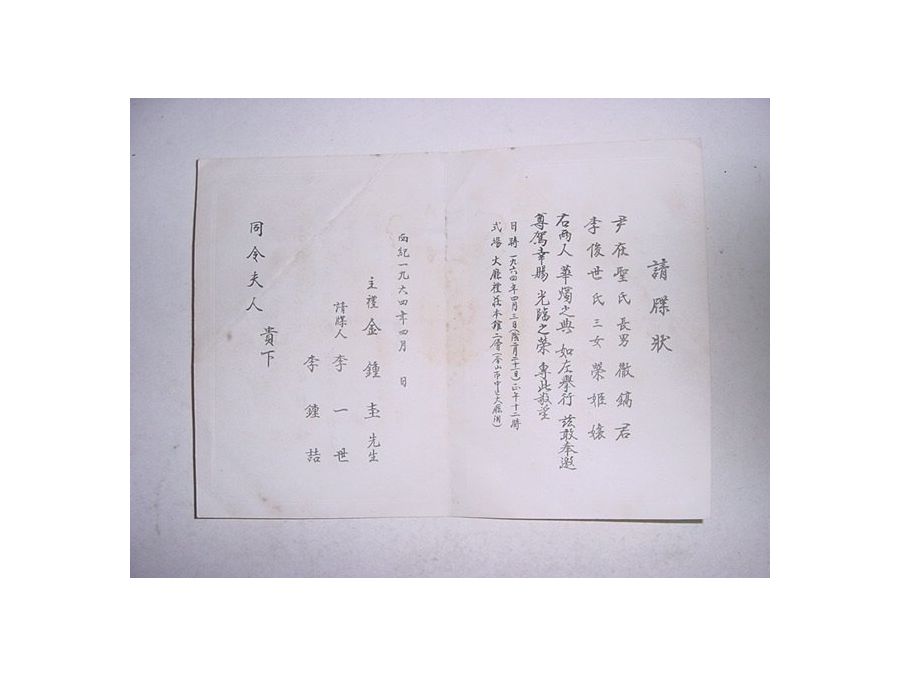 請牒狀
尹在聖氏長男徹鎬君
李俊世氏三女榮姬孃
右兩人華燭之典如左擧行茲敢奉邀
尊駕幸賜光臨之榮專此敬望
日時 一九六四年四月三日(陰二月二十一日)正午十二時
式場 大廳禮莊本館二層(釜山市中區大廳洞)
西紀一九六四年四月 日
主禮 金鍾圭先生
請牒人 李一世
李鍾喆
同令夫人 貴下